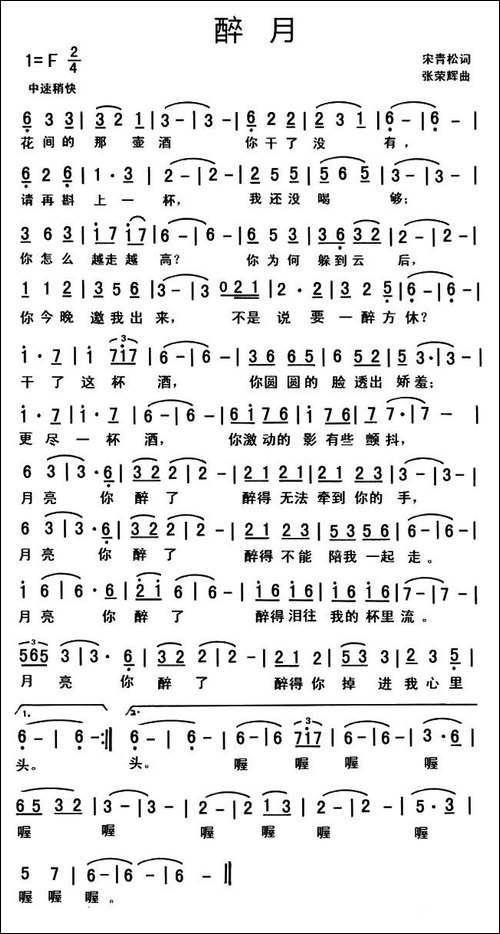 醉 月
1=F 2/4
宋青松词
张荣辉曲
中速稍快
6 3 3 | 3 2 1 | 3 - | 3 - | 6 2 2 | 2 3 1 | 6 - | 6 - |
花 间 的 那 壶 酒 你 干 了 没 有,
6 2 6 | 1 · 3 | 2 - | 2 - | 2 5 5 | 5 6 5 | 3 - | 3 - |
请 再 斟 上 一 杯, 我 还 没 喝 够;
3 6 3 | i 7 i 7 | 6 - | 6 - | 6 5 3 | 3 6 3 2 | 2 - | 2 - |
你 怎 么 越 走 越 高? 你 为 何 躲 到 云 后,
1 1 2 | 3 5 6 | 3 - | 3 0 2 1 | 2 · 2 | 3 2 5 | 6 - | 6 - |
你 今 晚 邀 我 出 来, 不 是 说 要 一 醉 方 休?
i · 7 | i 7i7 | 6 - | 6 - | 3 6 6 5 | 6 5 6 2 | 5 3 · | 3 - |
干 了 这 杯 酒, 你 圆 圆 的 脸 透 出 娇 羞;
i · 7 | i · 7 | 6 - | 6 - | 6 i 7 6 | i 7 6 | 7 7 · | 7 - |
更 尽 一 杯 酒, 你 激 动 的 影 有 些 颤 抖,
6 3 | 3 · 6 | 3 2 2 | 2 - | 2 1 2 2 | 2 1 2 1 | 3 - | 3 - |
月 亮 你 醉 了 醉得 无法 牵到 你的 手,
6 3 | 3 · 6 | 3 2 2 | 2 - | 2 1 2 3 | 5 3 5 6 | 6 - | 6 - |
月 亮 你 醉 了 醉得 不能 陪我 一起 走。
i 6 | 6 · 6 | 2 i 6 | 6 - | i 6 i 6 | i 6 i 6 | 7 - | 7 - |
月 亮 你 醉 了 醉得 泪往 我的 杯里 流。
565 3 | 3 · 6 | 3 2 2 | 2 - | 2 1 2 | 5 3 3 | 3 2 5 |
月 亮 你 醉 了 醉得 你 掉 进 我 心 里
1. 6 - | 6 - :‖ 2. 6 - | 6 - | 6 - | 6 7i7 | 6 - | 6 - | 3 · 6 |
头。 头。 喔 喔 喔 喔
6 5 3 2 | 3 - | 3 - | 2 - | 2 1 3 | 2 - | 2 - | 5 · 3 |
喔 喔 喔 喔 喔 喔
5 7 | 6 - | 6 - | 6 - | 6 - ‖
喔 喔 喔。